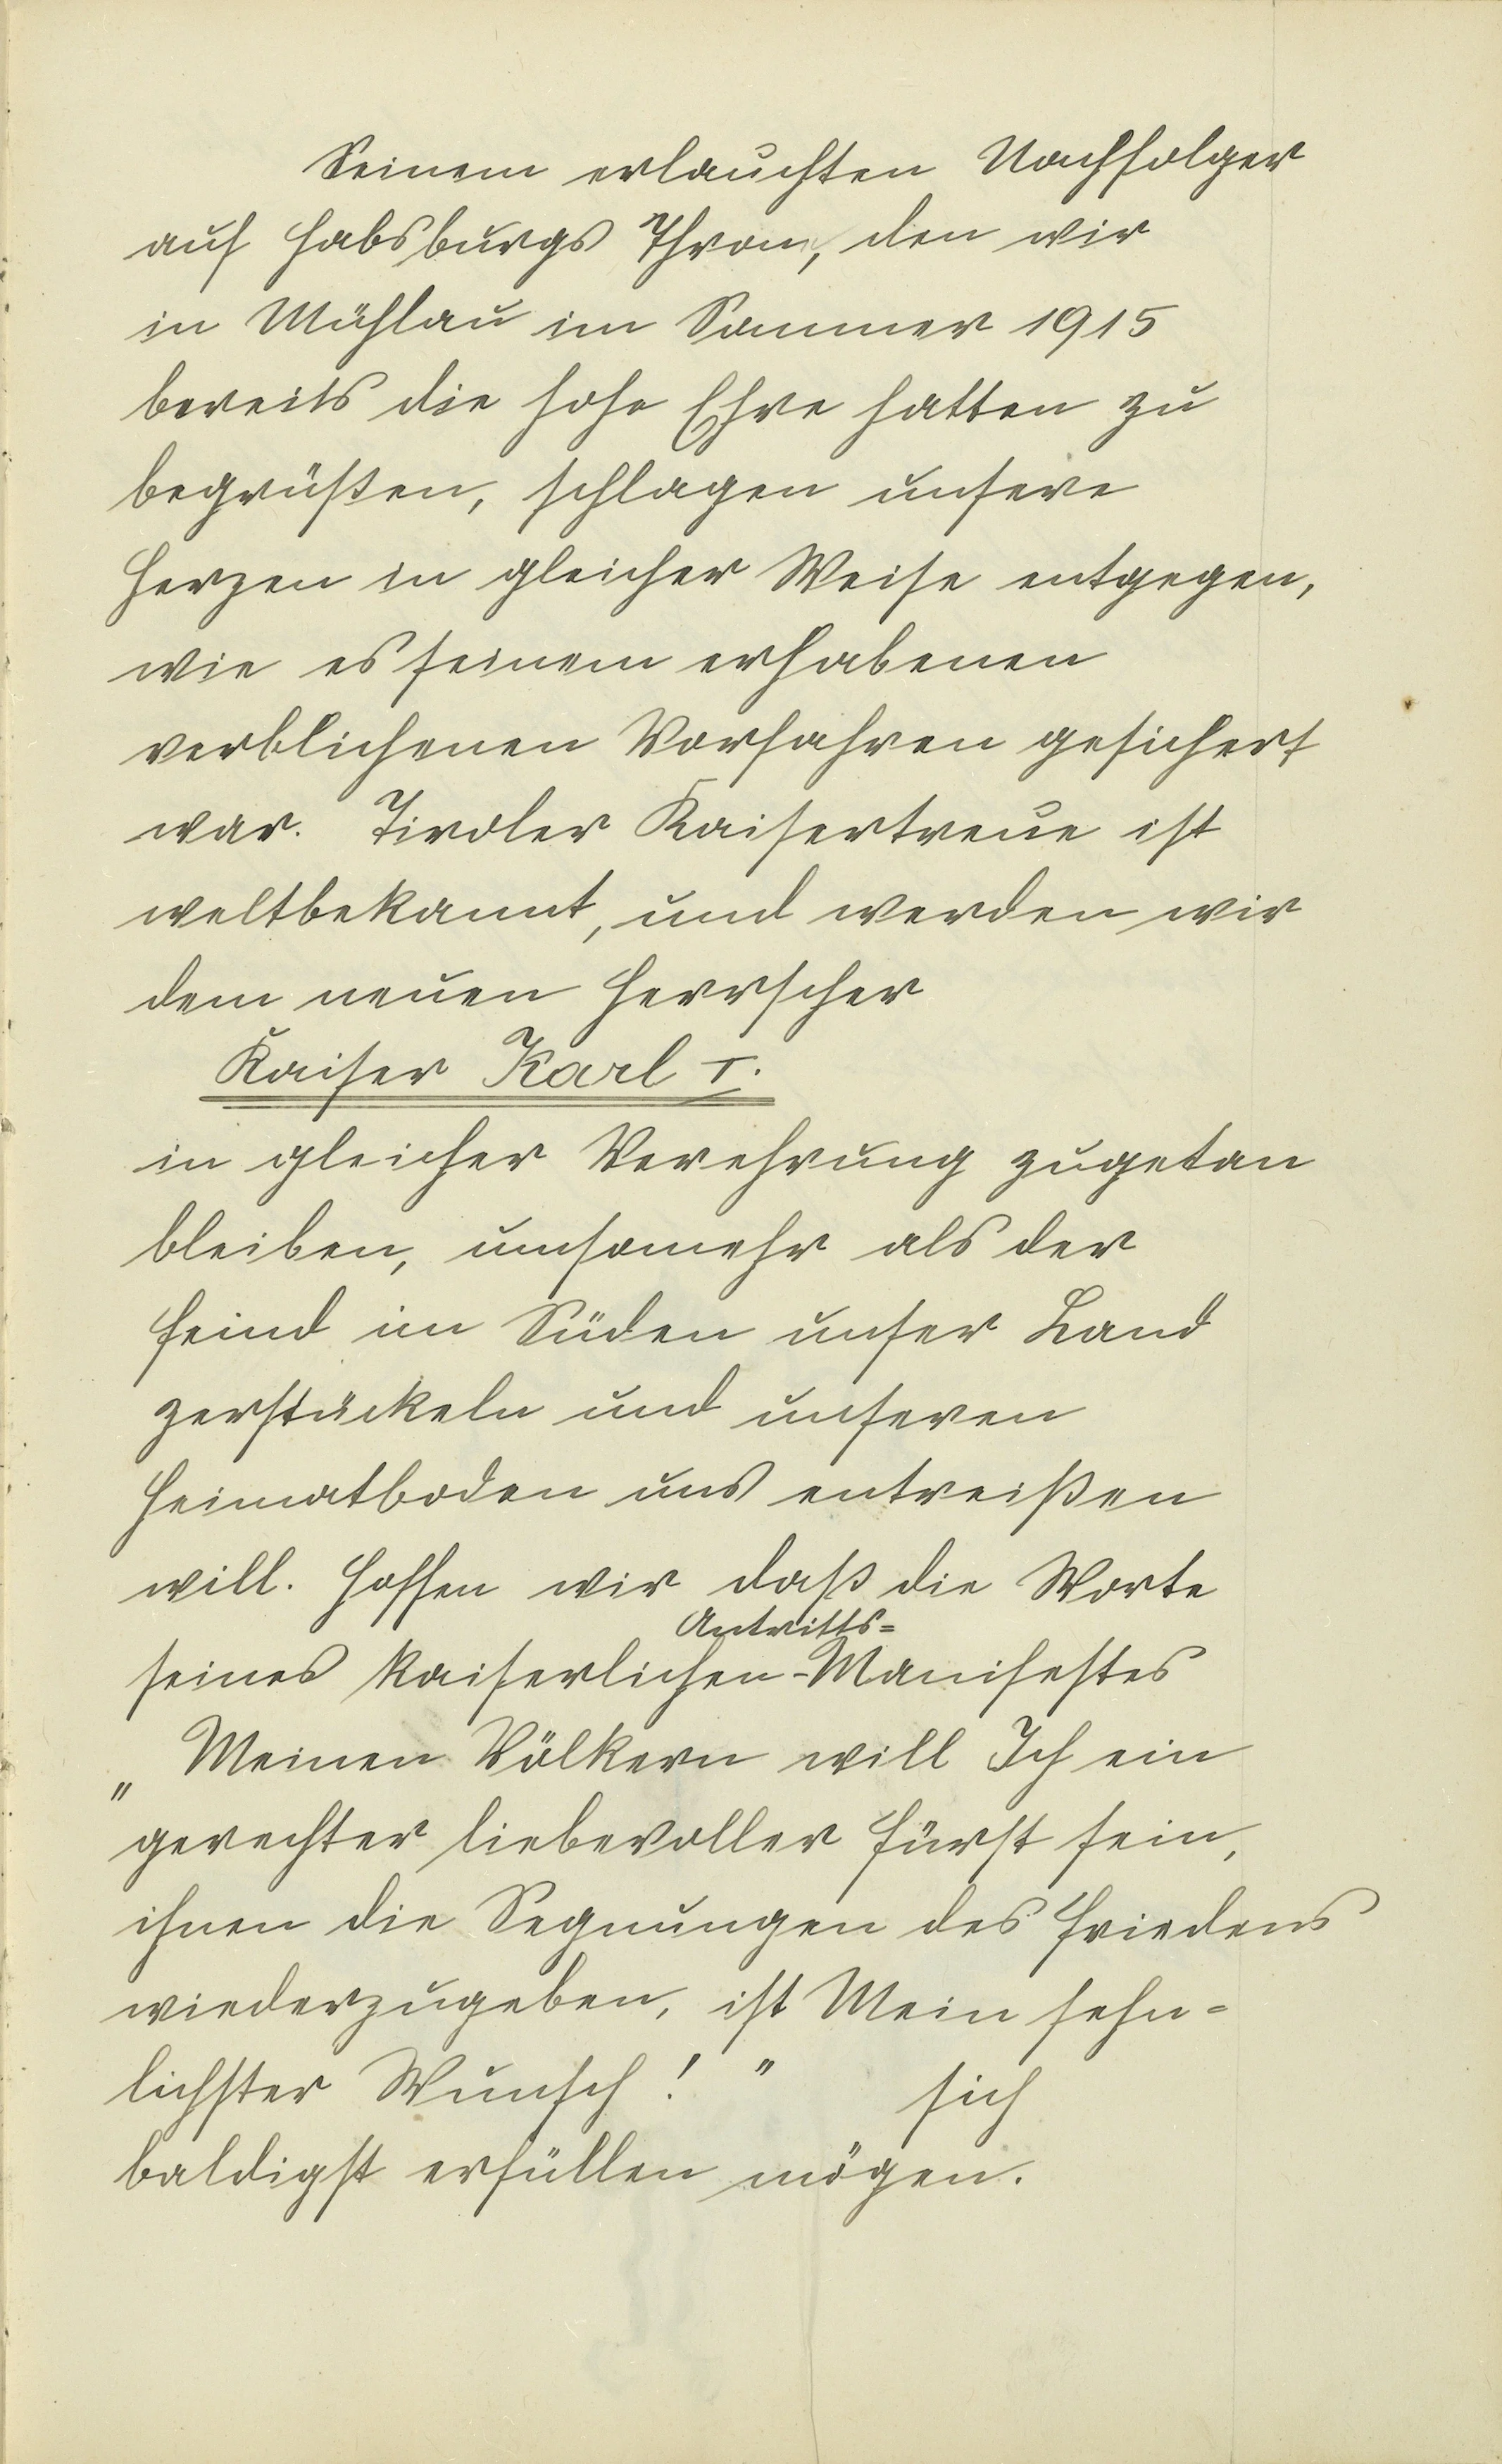 Seinem erlauchten Nachfolger
auf Habsburgs Thron, den wir
in Mühlau im Sommer 1915
bereits die hohe Ehre hatten zu
begrüßen, schlagen unsere
Herzen in gleicher Weise entgegen,
wie es seinem erhabenen
verblichenen Vorfahren gesichert
war. Tiroler Kaisertreue ist
weltbekannt, und werden wir
dem neuen Herrscher
Kaiser Karl I.
in gleicher Verehrung zugetan
bleiben, umsomehr als der
Feind im Süden unser Land
zerstückeln und unseren
Heimatboden uns entreißen
will. Hoffen wir daß die Worte
Antritts=
seines kaiserlichen-Manifestes
„Meinen Völkern will Ich ein
gerechter liebevoller Fürst sein,
ihnen die Segnungen des Friedens
wiederzugeben, ist Mein sehn=
lichster Wunsch! " sich
baldigst erfüllen mögen.